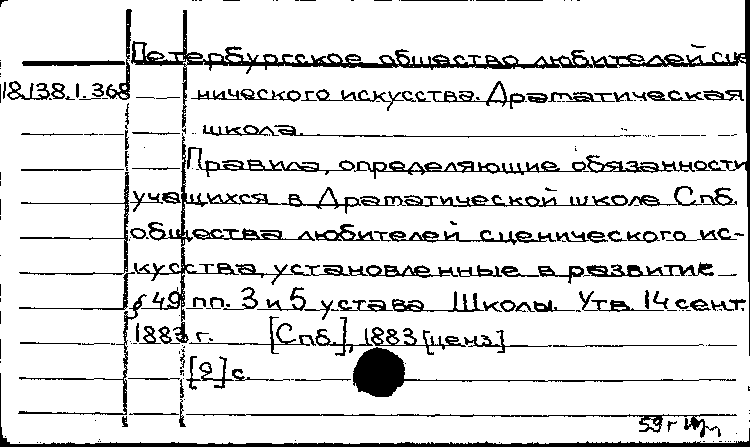 Петербургское общество любителей сце-
18.138.1.368 нического искусства. Драматическая
школа.
Правила, определяющие обязанности
учащихся в Драматической школе Спб.
общества любителей сценического ис-
кусства, установленные в развитие
§ 49 пп. 3 и 5 устава Школы. Утв. 14 сент.
1883 г. [Спб.], 1883 [ценз]
[2] с.
59 г